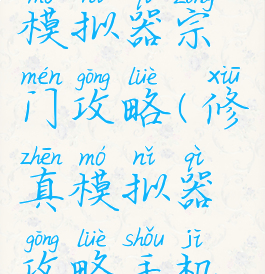 mó nǐ qì zōng
模拟器宗
mén gōng lüè xiū
门攻略(修
zhēn mó nǐ qì
真模拟器
gōng lüè shǒu jī
攻略手机